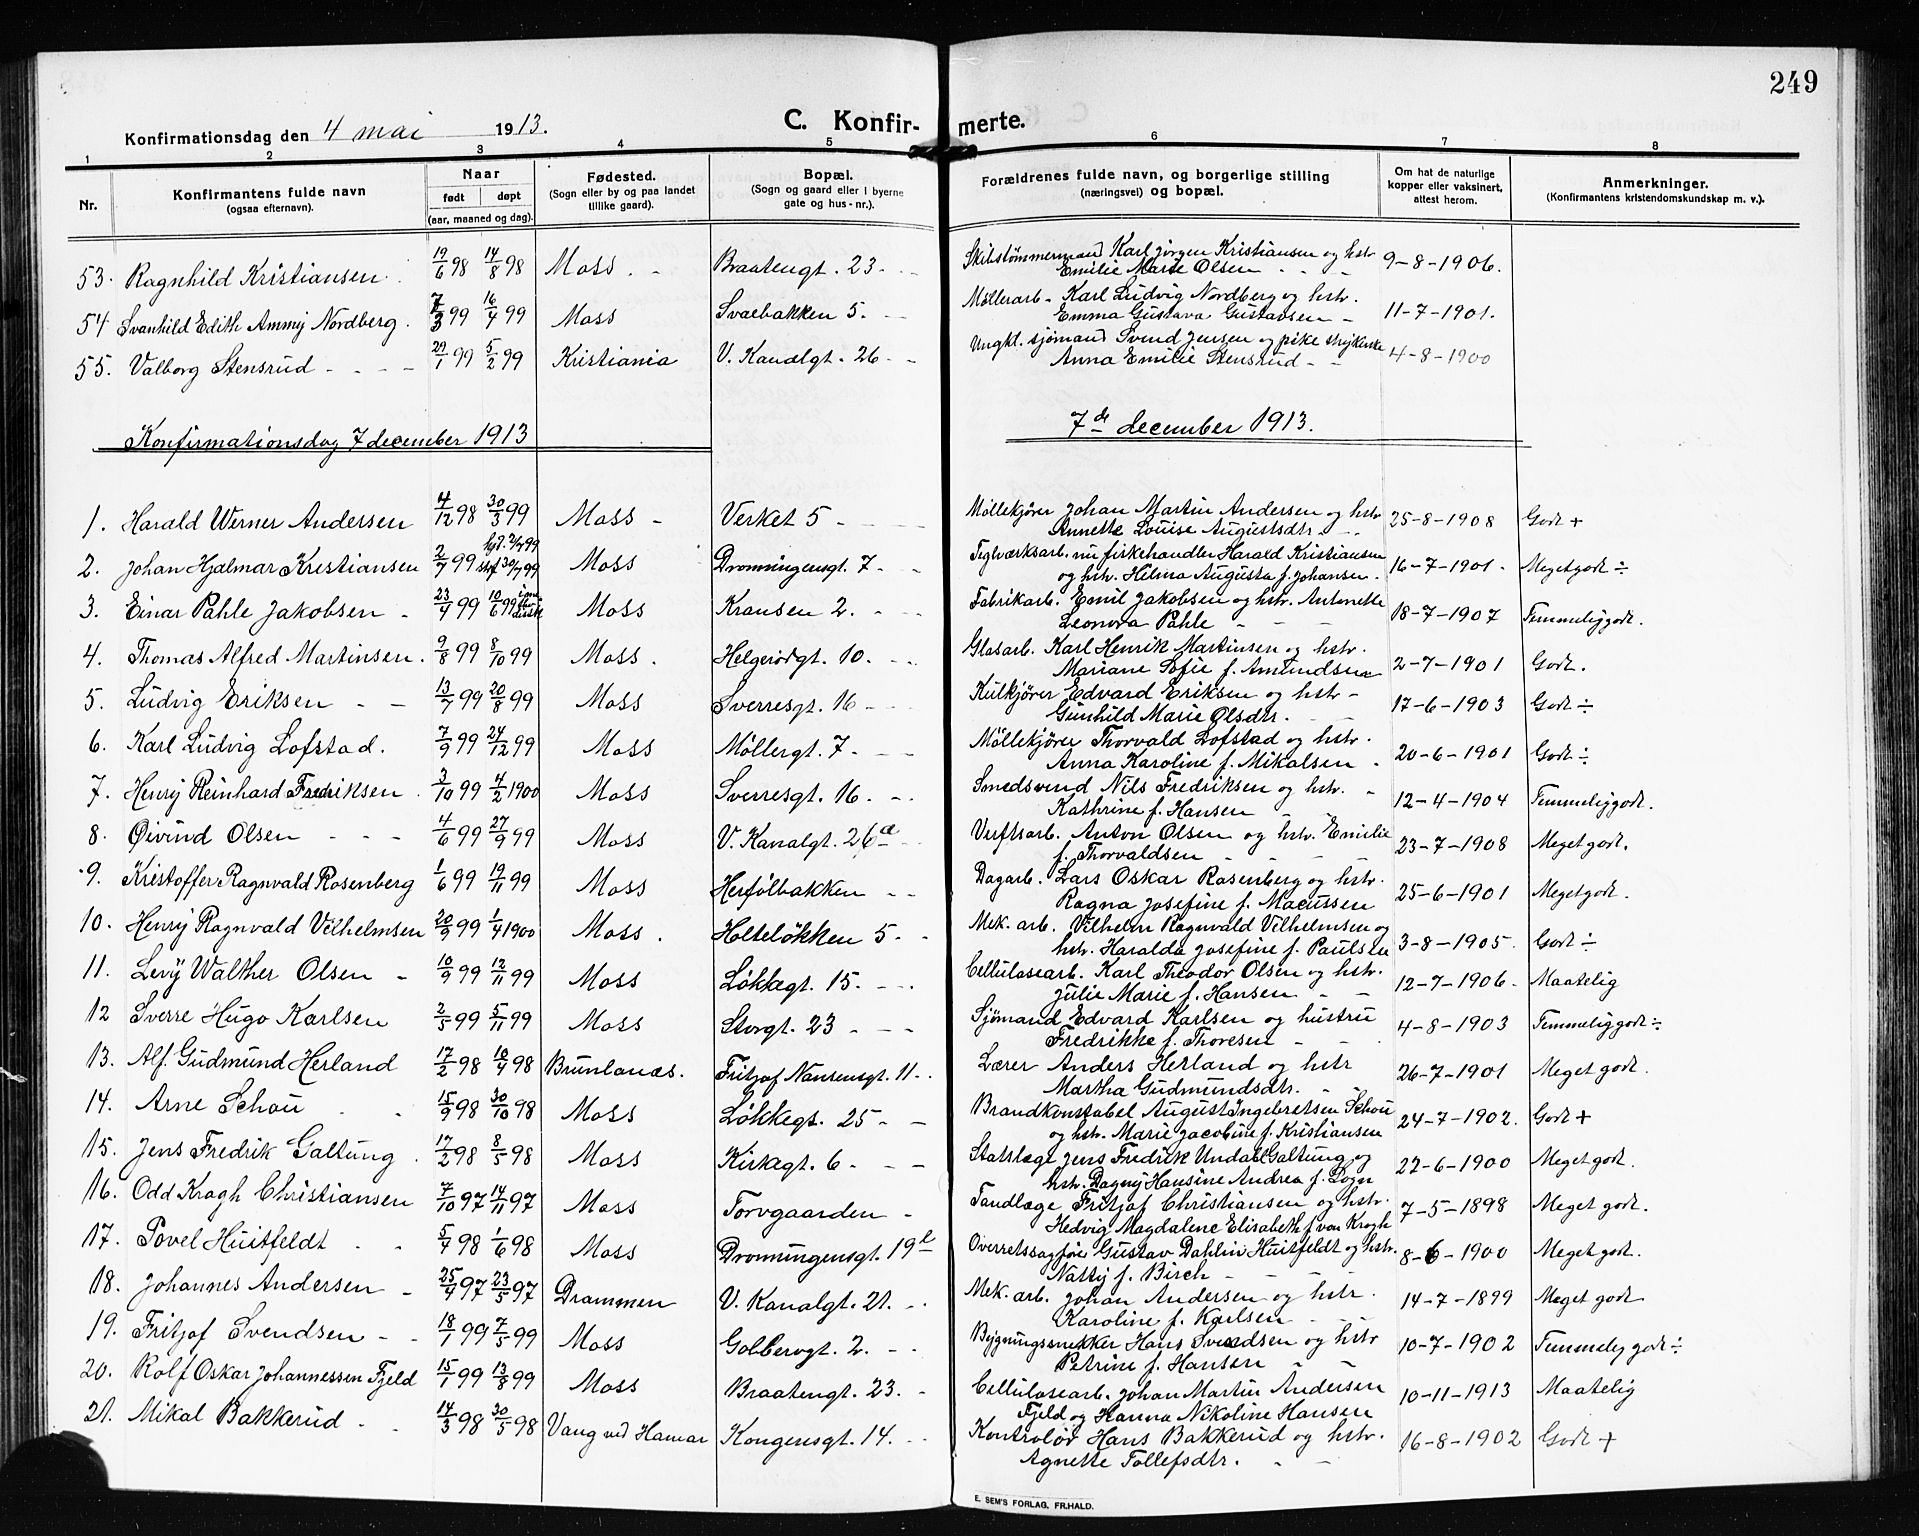 249
Konfirmationsdag den 4 mai 1913.
C. Konfirmerte.
1 2 3 4 5 6 7 8
Nr.
Konfirmantens fulde navn
(ogsaa efternavn).
Naar
født døpt
(aar, maaned og dag).
Fødested.
(Sogn eller by og paa landet
tillike gaard).
Bopæl.
(Sogn og gaard eller i byerne
gate og hus-nr.).
Forældrenes fulde navn, og borgerlige stilling
(næringsvei) og bopæl.
Om hat de naturlige
kopper eller vaksinert,
attest herom.
Anmerkninger.
(Konfirmantens kristendomskundskap m. v.).
53. Ragnhild Kristiansen. 19/6 98 14/8 98 Moss. - Braatengt. 23 - - Skibstømmermand Karl Jørgen Kristiansen og hstr 9-8-1906.
Emilie Marie Olsen
54 Svanhild Edith Ammy Nordberg. 7/3 99 16/4 99 Moss Svaebakken 5. - Møllerarb - Karl Ludvig Nordberg og hstr. 11-7-1901.
Emma Gustava Gustavsen -
55. Valborg Stensrud - - - - 29/1 99 5/2 99 Kristiania V. Kanalgt. 26 - - Ungkl. sjømand Svend Jensen og pike strykerske 4-8-1900
Anna Emilie Stensrud - -
Konfirmationsdag 7 december 1913 7de december 1913.
1. Harald Werner Andersen 4/12 98 30/3 99 Moss - Verket 5 - Møllekjører Johan Martin Andersen og hstr 25-8-1908 Godt +
Annette Louise Augustsdtr - -
2. Johan Hjalmar Kristiansen 2/7 99 Moss Dronningensgt. 7 - - Teglværksarb. nu fiskehandler Harald Kristiansen 16-7-1901. Meget godt ÷
og hstr. Hilma Augusta f. Johansen.
3. Einar Pahle Jakobsen - 23/4 99 10/6 99 Moss Kransen 2. Fabrikarb. Emil Jakobsen og hstr. Antonette 18-7-1907 Temmelig godt.
Leonora Pahle
4. Thomas Alfred Martinsen. 9/8 99 8/10 99 Moss. Helgerødgt. 10. Glasarb. Karl Henrik Martinsen og hstr. 2-7-1901 Godt.
Mariane Sofie f. Amundsen
5. Ludvig Eriksen - - 13/7 99 20/8 99 Moss Sverresgt. 16 - Kulkjører Edvard Eriksen og hstr - 17-6-1903 Godt ÷
Gunhild Marie Olsdtr.
6. Karl Ludvig Lofstad. 7/9 99 24/12 99 Moss Møllergt. 7 - Møllekjører Thorvald Lofstad og hstr. 20-6-1901 Godt ÷
Anna Karoline f. Mikalsen
7. Henry Reinhard Fredriksen. 3/10 99 4/2 1900 Moss Sverresgt. 16. - Smedsvend Nils Fredriksen og hstr. - 12-4-1904 Temmelig godt.
Kathrine f. Hansen
8. Øivind Olsen - - - 4/6 99 27/9 99 Moss V. Kanalgt. 26a Verftsarb. Anton Olsen og hstr. Emilie 23-7-1908 Meget godt.
f. Thorvaldsen
9. Kristoffer Ragnvald Rosenberg 1/6 99 19/11 99 Moss Herfølbakken - - Dagarb. Lars Oskar Rosenberg og hstr. 25-6-1901 Meget godt.
Ragna Josefine f. Macussen
10. Henry Ragnvald Vilhelmsen 20/9 99 1/4 1900 Moss. Holteløkken 5 - Mek. arb. Vilhelm Ragnvald Vilhelmsen og 3-8-1905. Godt ÷
hstr. Haralda Josefine f. Paulsen
11. Levy Walther Olsen - 10/9 99 12/11 99 Moss Løkkegt. 15. - Cellulosearb. Karl Theodor Olsen og hstr. 12-7-1906. Maatelig
Julie Marie f. Hansen
12 Sverre Hugo Karlsen 2/5 99 5/11 99 Moss Storgt. 23 - Sjømand Edvard Karlsen og hustru 4-8-1903 Temmelig godt ÷
Fredrikke f. Thoresen
13. Alf. Gudmund Herland 17/2 98 10/4 98 Brunlanes. Fritjof Nansensgt. 11. Lærer Anders Herland og hstr 26-7-1901 Meget godt.
Martha Gudmundsdtr.
14. Arne Schou 15/9 98 30/10 98 Moss Løkkegt. 25 - - Brandkonstabel August Ingebretsen Schou 24-7-1902. Godt +
og hstr. Marie Jacobine f. Kristiansen
15. Jens Fredrik Galtung. 17/2 98 8/5 98 Moss Kirkegt. 6 - Statslæge Jens Fredrik Undall Galtung og 22-6-1900 Meget godt.
hstr. Dagny Hansine Andrea f. Sogn
16. Odd Kragh Christiansen 7/10 97 14/11 97 Moss Torvgaarden - Tandlæge Fritjof Christiansen og hstr. 7-5-1898 Meget godt.
Hedvig Magdalene Elisabeth f. von Krogh
17. Povel Huitfeldt 5/4 98 1/6 98 Moss Dronningensgt. 19 Overretssagfører Gustav Dahlin Huitfeldt og hstr. 8-6-1900 Meget godt.
Natty f. Birch
18. Johannes Andersen - 25/4 97 23/5 97 Drammen V. Kanalgt. 21. Mek. arb. Johan Andersen og hstr. 14-7-1899 Meget godt
Karoline f. Karlsen
19. Fritjof Svendsen - 18/1 99 7/5 99 Moss Gobbergt. 2. Bygningssnekker Hans Svendsen og hstr 10-7-1902 Temmelig godt ÷
Petrine f. Hansen
20. Rolf Oskar Johannessen Fjeld 15/1 99 13/8 99 Moss Braatengt. 23. Cellulosearb. Johan Martin Andersen 10-11-1913 Maatelig
Fjeld og Hanna Nikoline Hansen
21. Mikal Bakkerud - 14/3 98 30/5 98 Vang ved Hamar Kongensgt. 14. Kontrolør Hans Bakkerud og hstr. 16-8-1902 Godt +
Agnette Tollefsdtr.
E. SEM'S FORLAG, FR.HALD.